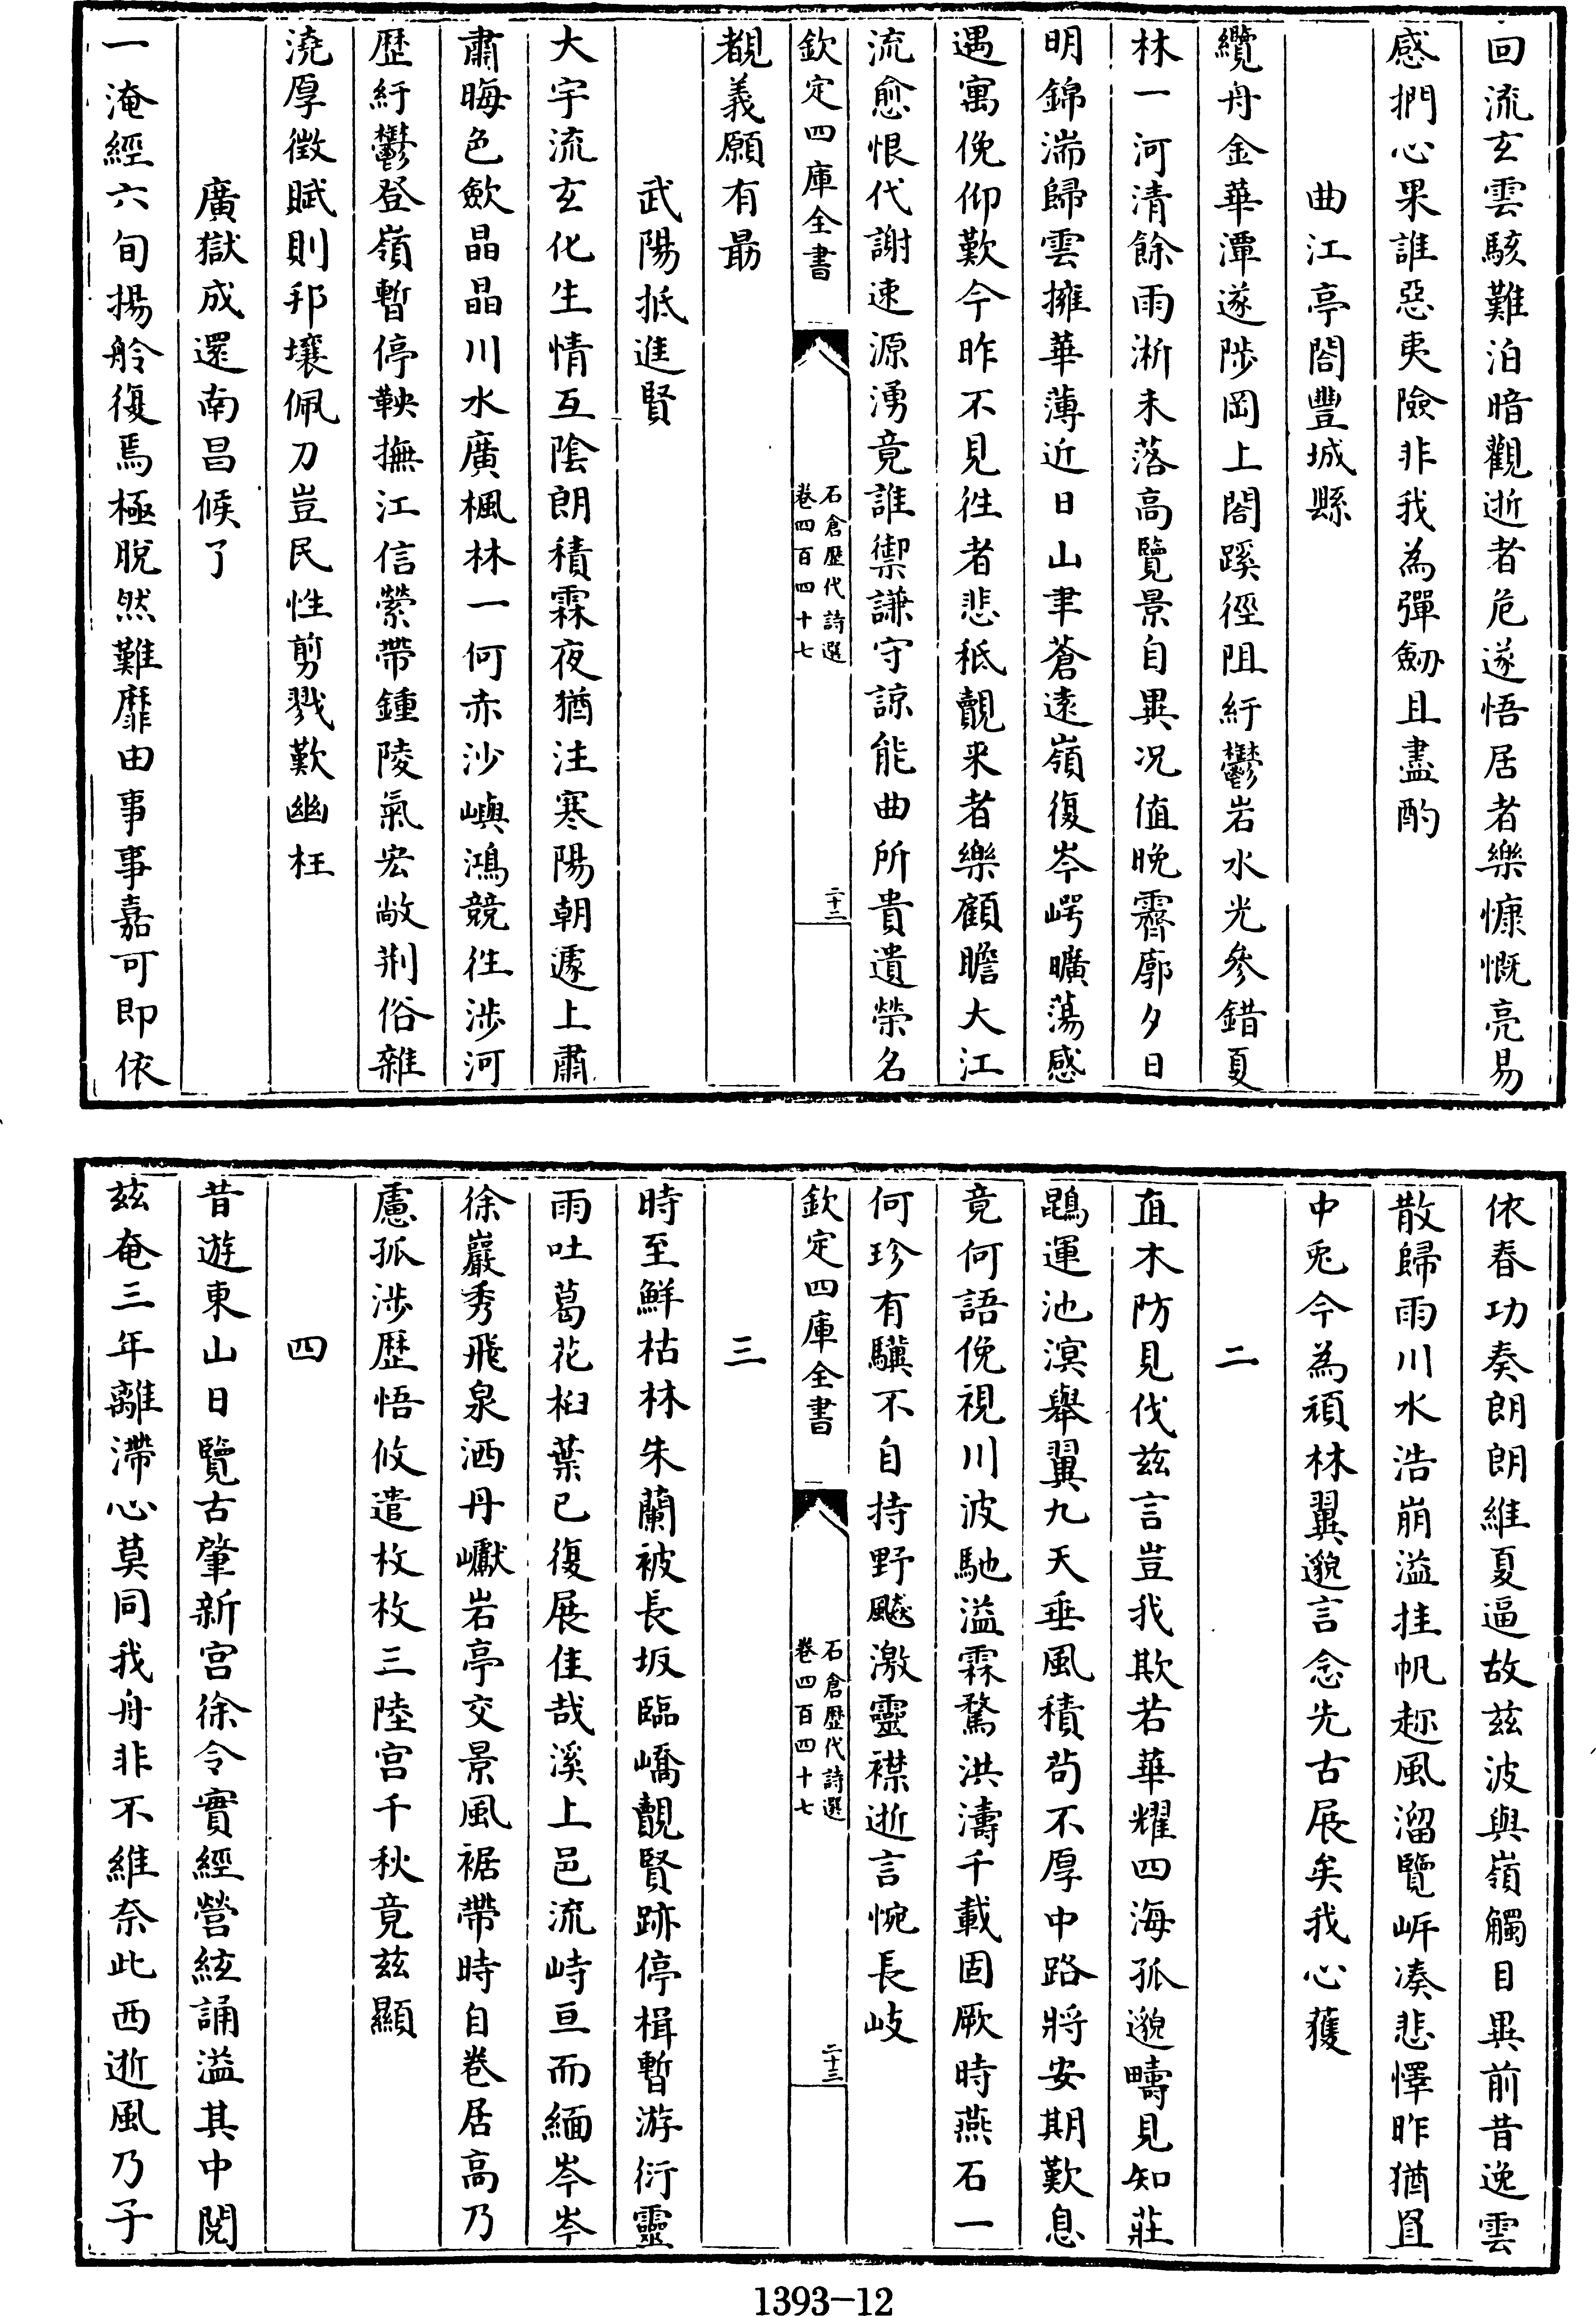 回流玄雲駭難泊暗觀逝者危遂悟居者樂慷慨亮易
感捫心果誰惡夷險非我為彈劒且盡酌
曲江亭閣豐城縣
纜舟金華潭遂陟岡上閣蹊徑阻紆鬱岩水光參錯夏
林一河清餘雨淅未落高覽景自異况值晚霽廓夕日
明錦湍歸雲擁華薄近日山聿蒼遠嶺復岑崿曠蕩感
遇寓俛仰歎今昨不見徃者悲秪覿来者樂顧瞻大江
流愈恨代謝速源湧竟誰禦謙守諒能曲所貴遺榮名
欽定四庫全書
石倉歷代詩選
卷四百四十七
二十二
覩義願有朂
武陽抵進賢
大宇流玄化生情互陰朗積霖夜猶注寒陽朝遽上肅
肅晦色歛晶晶川水廣楓林一何赤沙嶼鴻競徃涉河
歷紆鬱登嶺暫停鞅撫江信縈帶鍾陵氣宏敞荆俗雜
澆厚徵賦則邦壤佩刀豈民性剪戮歎幽枉
廣獄成還南昌候了
一淹經六旬揚舲復焉極脫然難靡由事事嘉可即依
依春功奏朗朗維夏逼故兹波與嶺觸目異前昔逸雲
散歸雨川水浩崩溢挂帆趂風溜覽㟁凑悲懌昨猶罝
中兎今為頏林翼邈言念先古展矣我心獲
二
直木防見伐兹言豈我欺若華耀四海孤邈疇見知莊
鵾運池溟舉翼九天垂風積苟不厚中路將安期歎息
竟何語俛視川波馳溢霖騖洪濤千載固厥時燕石一
何珍有驥不自持野飇激靈襟逝言惋長岐
欽定四庫全書
石倉歷代詩選
卷四百四十七
二十三
三
時至鮮枯林朱蘭被長坂臨嶠覿賢跡停楫暫游衍靈
雨吐葛花桕葉已復展佳哉溪上邑流峙亘而緬岑岑
徐巖秀飛泉洒丹巘岩亭交景風裾帶時自卷居高乃
慮孤涉歷悟攸遣枚枚三陸宮千秋竟兹顯
四
昔遊東山日覽古肇新宮徐令實經營絃誦溢其中閱
兹奄三年離滯心莫同我舟非不維奈此西逝風乃子
1393-12